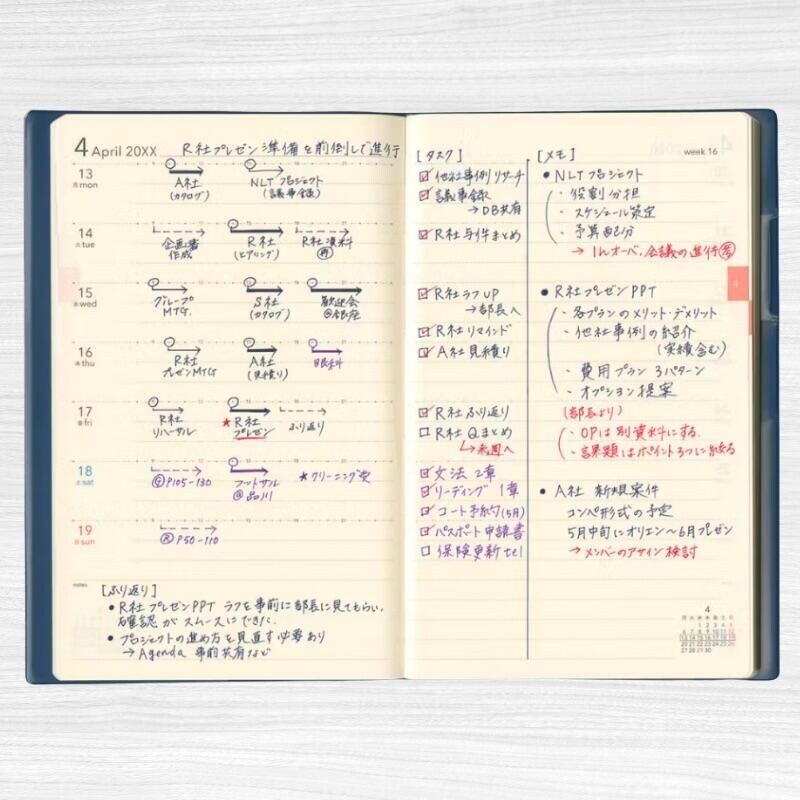 4 April 20XX R社プレゼン準備を前倒しで進行
13 月 mon
A社
(カタログ)
NLTプロジェクト
(議事録)
14 火 tue
企画書
作成
R社
(ヒアリング)
R社資料
15 水 wed
グループ
MTG.
S社
(カタログ)
歓迎会
@銀座
16 木 thu
R社
プレゼンMTG
A社
(見積り)
眼科
17 金 fri
R社
リハーサル
★R社
プレゼン
ふり返り
18 土 sat
P105-130
フットサル
@品川
★クリーニング受
19 日 sun
Ⓡ P50-110
notes
[ふり返り]
● R社プレゼンPPT ラフを事前に部長に見てもらい、
確認がスムーズにできた。
● プロジェクトの進め方を見直す必要あり
→ Agenda 事前共有など
[タスク]
☑ 他社事例リサーチ
☑ 議事録
→DB共有
☑ R社与件まとめ
☑ R社ラフUP
→部長へ
☑ R社リマインド
☑ A社見積り
☑ R社ふり返り
□ R社Qまとめ
→来週へ
☑ 文法 2章
☑ リーディング 1章
☑ コート予約(5月)
☑ パスポート申請書
□ 保険更新tel
[メモ]
week 16
● NLTプロジェクト
・役割分担
・スケジュール策定
・予算配分
→ 1hオーバー、会議の進行
● R社プレゼンPPT
・各プランのメリット・デメリット
・他社事例の紹介
(実績含む)
・費用プラン 3パターン
・オプション提案
(部長より)
・OPは別資料にする.
・課題はポイント3つに絞る
● A社 新規案件
コンペ形式の予定
5月中旬にオリエン〜6月プレゼン
→ メンバーのアサイン検討
4
4
月 火 水 木 金 土 日
1 2 3 4 5
6 7 8 9 10 11 12
13 14 15 16 17 18 19
20 21 22 23 24 25 26
27 28 29 30